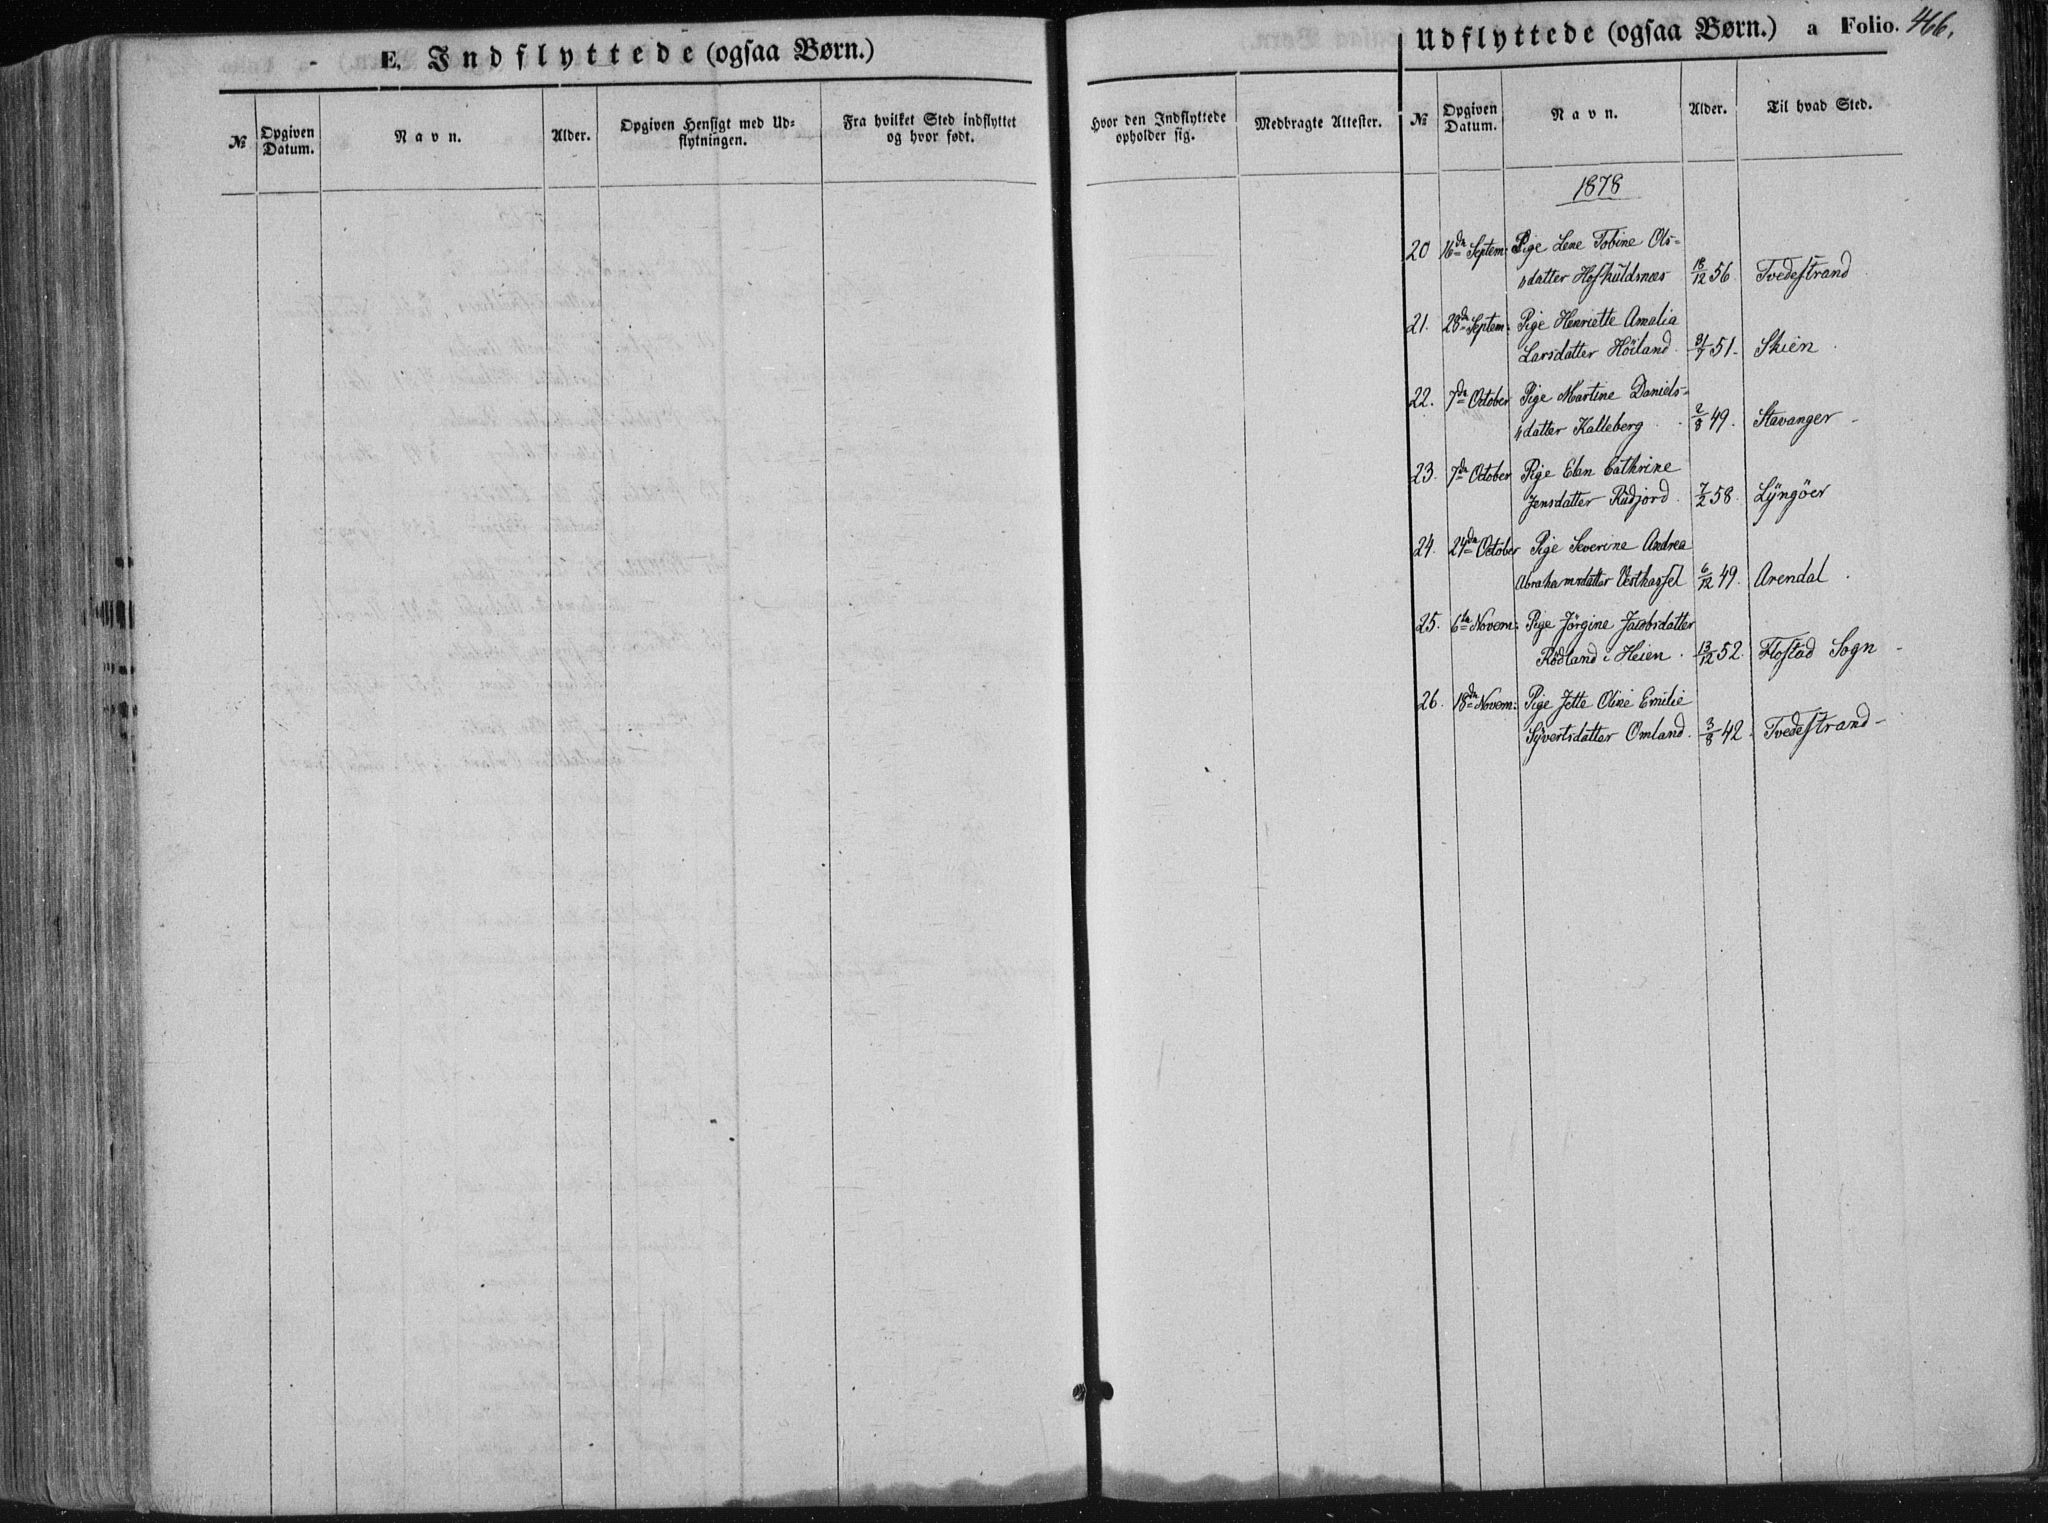 E. Indflyttede (ogsaa Børn.)
№ Opgiven Datum. Navn. Alder. Opgiven Hensigt med Udflytningen. Fra hvilket Sted indflyttet og hvor født.
Hvor den Indflyttede opholder sig. Medbragte Attester.
Udflyttede (ogsaa Børn.) a Folio. 466.
№ Opgiven Datum. Navn. Alder. Til hvad Sted.
1878
20 16de Septem: Pige Lene Tobine Ols=
datter Hofhuldsnæs 18/12 56. Tvedestrand
21. 28de Septem: Pige Henriette Amalia
Larsdatter Höiland. 31/7 51. Skien.
22. 7de October Pige Martine Daniels=
datter Kalleberg 2/8 49. Stavanger
23. 7de October Pige Elen Cathrine
Jensdatter Rudjord. 7/2 58. Lyngöer
24. 24de October Pige Severine Andrea
Abrahamsdatter Vesthassel 6/12 49. Arendal.
25. 6te Novem: Pige Jörgine Jacobsdatter
Rödland i Heien. 13/12 52. Flostad Sogn
26. 18de Novem: Pige Jette Oline Emilie
Syvertsdatter Omland. 3/8 42. Tvedestrand